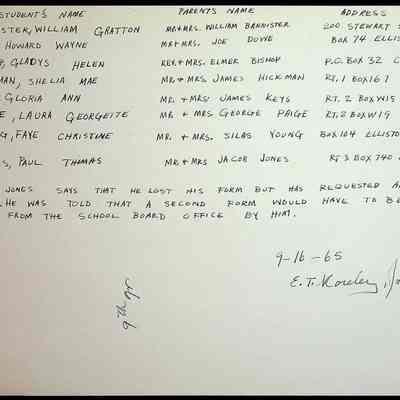 STUDENT'S NAME PARENT'S NAME ADDRESS
STER, WILLIAM GRATTON MR & MRS. WILLIAM BANNISTER 200 STEWART S
HOWARD WAYNE MR & MRS. JOE DOVE BOX 74 ELLIS
GLADYS HELEN REV & MRS. ELMER BISHOP P.O. BOX 32 C
MAN, SHELIA MAE MR. & MRS JAMES HICKMAN RT. 1 BOX 167
GLORIA ANN MR. & MRS. JAMES KEYS RT. 2 BOX W15
E, LAURA GEORGEITE MR. & MRS. GEORGE PAIGE RT. 2 BOX W19
G, FAYE CHRISTINE MR. & MRS. SILAS YOUNG BOX 104 ELLISTO
S, PAUL THOMAS MR. & MRS JACOB JONES RT 3 BOX 740
JONES SAYS THAT HE LOST HIS FORM BUT HAS REQUESTED A
HE WAS TOLD THAT A SECOND FORM WOULD HAVE TO BE
FROM THE SCHOOL BOARD OFFICE BY HIM.
9-16-65
E. T.
9th gr